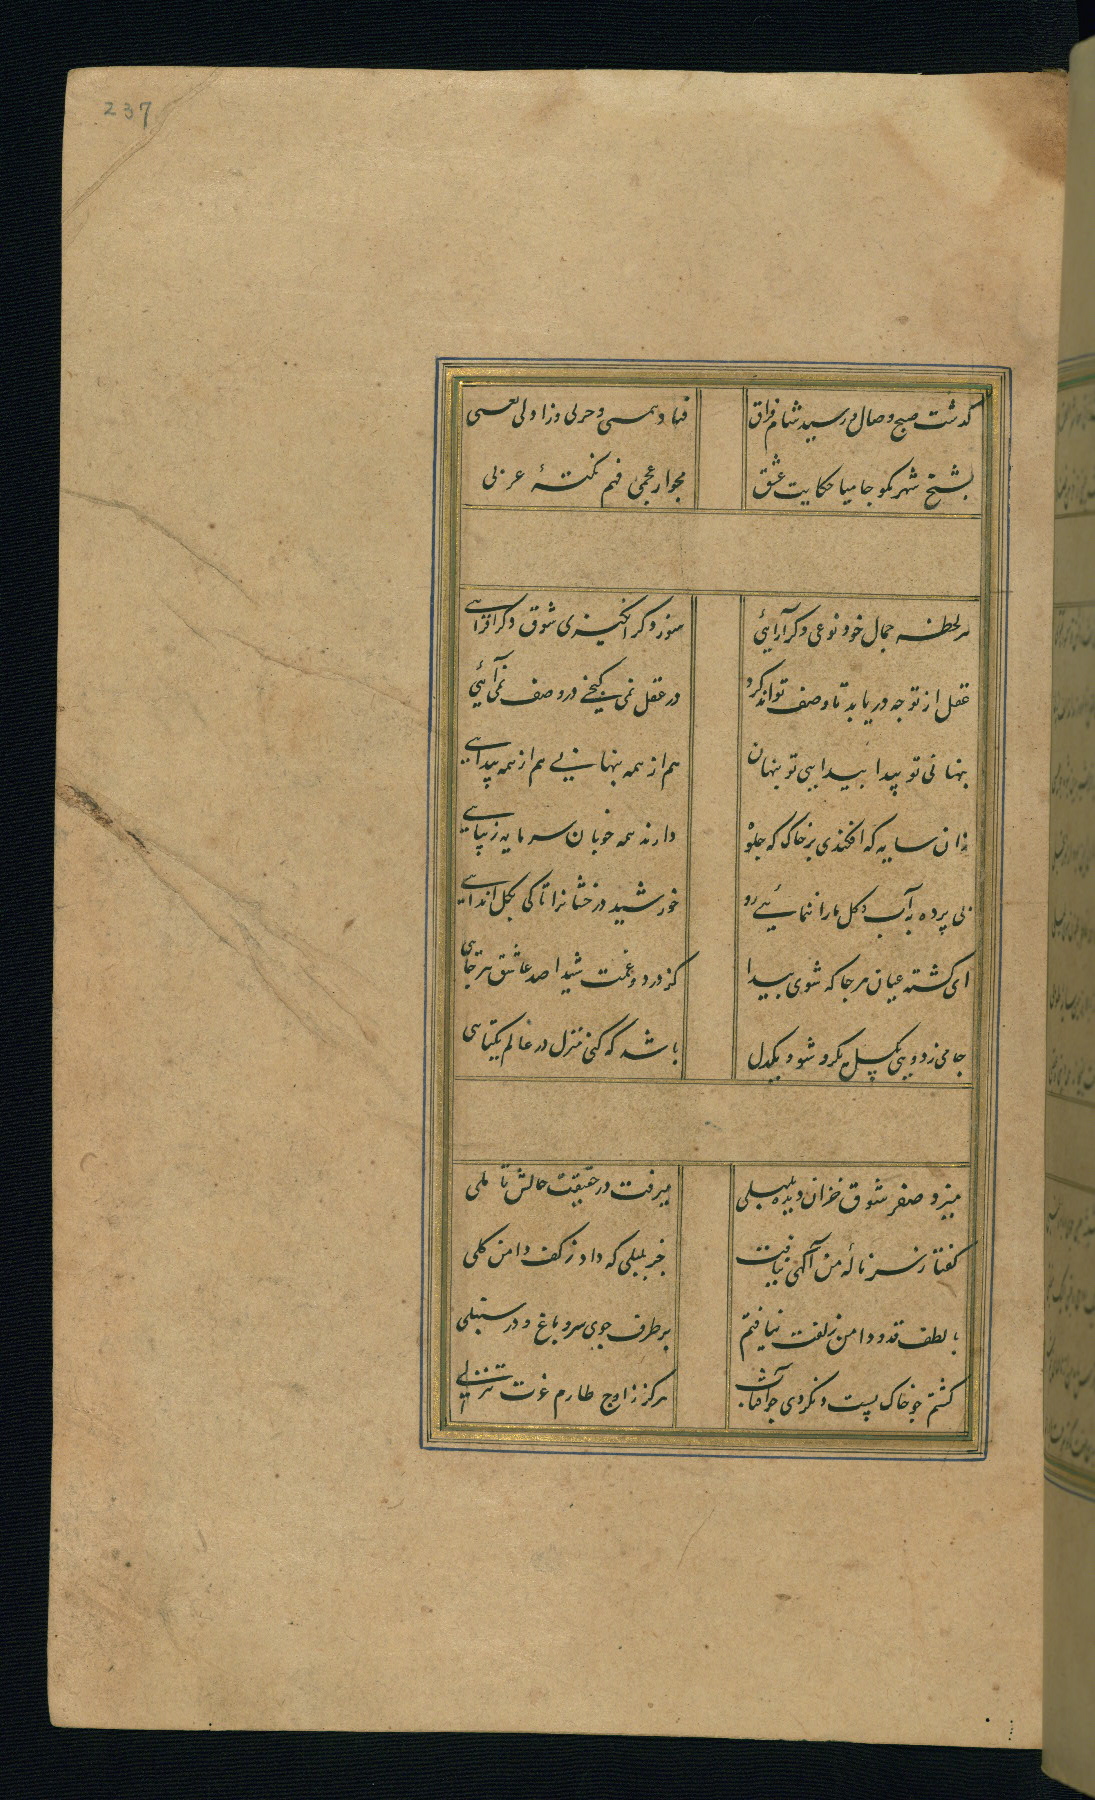 237
گذشت صبح وصال و رسید شام فراق
بشیخ شهر مگو جامیا حکایت عشق مجوز از عجمی فهم نکتهٔ عربی
هر لحظه جمال خود نوعی دگر آرایئی شور دگر انگیزی شوق دگر افزایی
عقل از تو چه دریابد تا وصف تو اند کرد در عقل نمی گنجی در وصف نمی آئی
پنهانئی تو پیدا پیدایی تو پنهان هم از همه پنهانی هم از همه پیدایی
زان سایه که افکندی بر خاک که جلوه دارند همه خوبان سرمایه زیبایی
بی پرده به آب و گل ما را ننمائی رو خورشید درخشانرا تا کی بگل اندایی
ای گشته عیان هر جا که شوی پیدا کز درد و غمت شیدا صد عاشق هر جایی
جامی ز دویی بگسل یکرو شو و یکدل باشد که کنی منزل در عالم یکتایی
میزد صفیر شوق خزان دیده بلبلی میرفت در حقیقت حالش تاملی
گفتا ز سر نالهٔ من آگهی نیافت جز بلبلی که داد ز کف دامن گلی
با لطف قد و دامن زلفت نیافتم بر طرف جوی سرو بباغ و در سنبلی
گشتم چو خاک پست و نکردی چو آفتاب هرگز ز اوج طارم عزت تنزلی